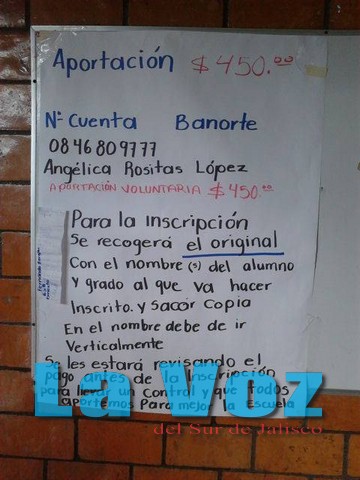 Aportación $ 450.00
Nº Cuenta Banorte
0846809777
Angélica Rositas López
APORTACIÓN VOLUNTARIA $450.00
Para la inscripción
Se recogerá el original
Con el nombre(s) del alumno
y grado al que va hacer
Inscrito. y Sacar Copia
En el nombre debe de ir
Verticalmente
Se les estará revisando el
pago antes de la inscripción
para llevar un control y que todos
aportemos Para mejor la escuela
La Voz
del Sur de Jalisco